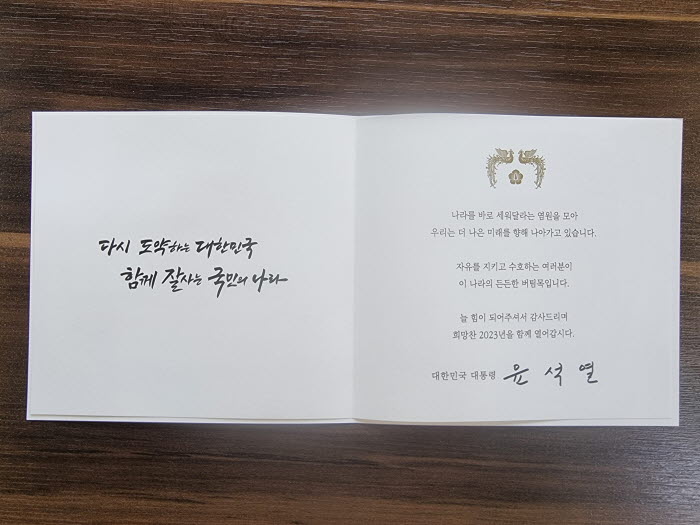 다시 도약하는 대한민국
함께 잘사는 국민의 나라
나라를 바로 세워달라는 염원을 모아
우리는 더 나은 미래를 향해 나아가고 있습니다.
자유를 지키고 수호하는 여러분이
이 나라의 든든한 버팀목입니다.
늘 힘이 되어주셔서 감사드리며
희망찬 2023년을 함께 열어갑시다.
대한민국 대통령 윤석열